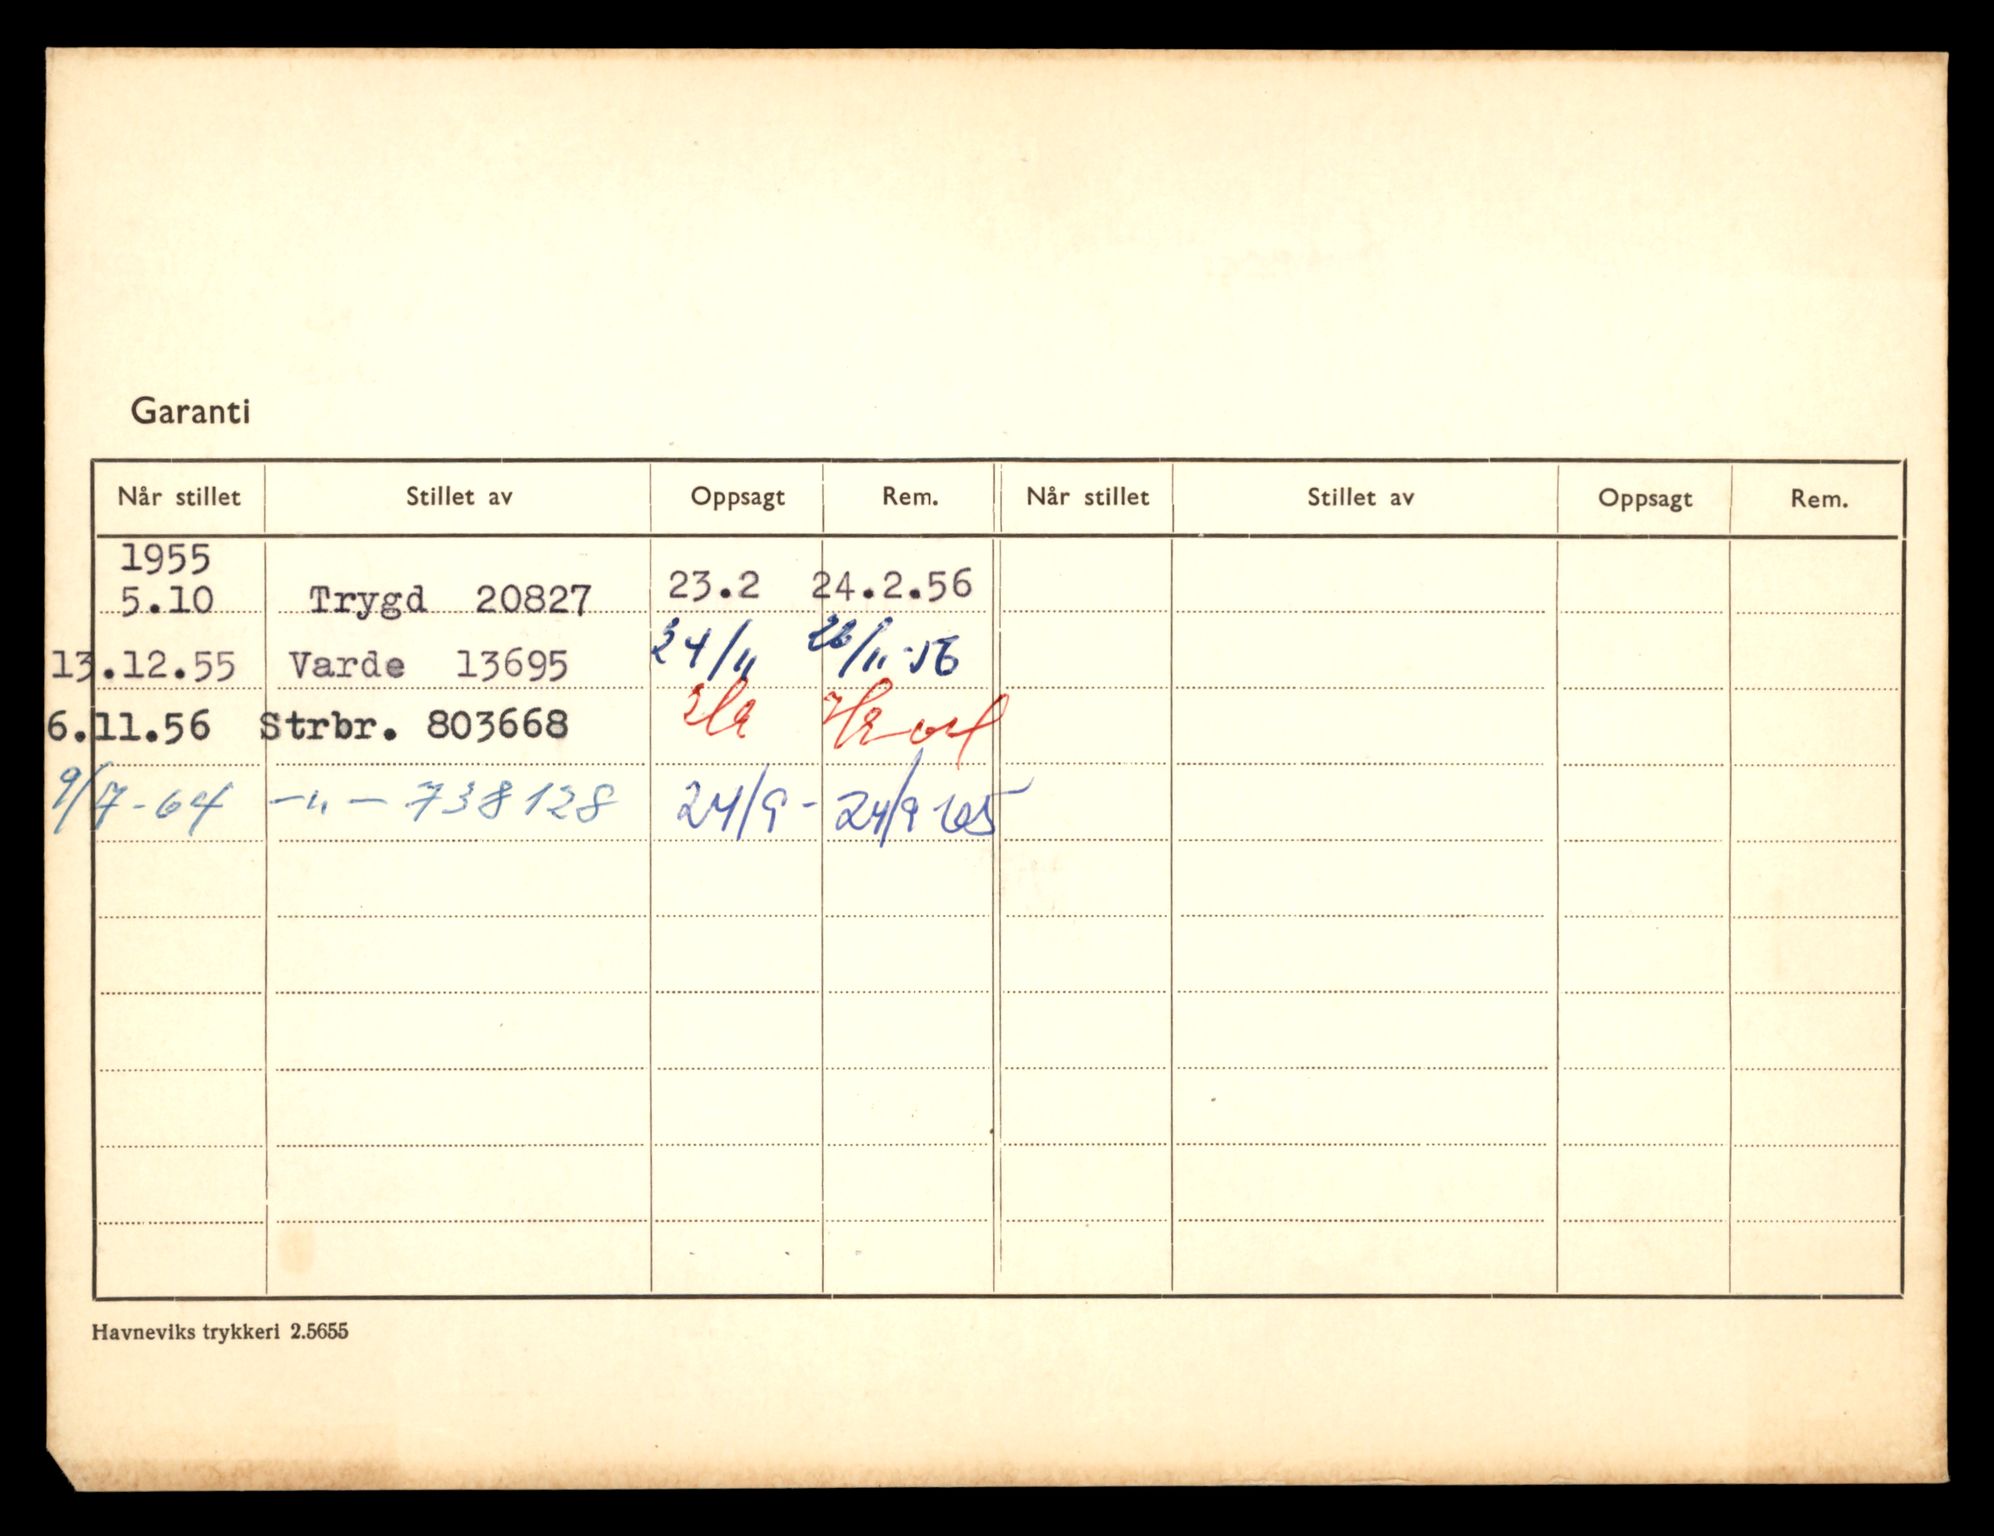 Garanti
Når stillet Stillet av Oppsagt Rem. Når stillet Stillet av Oppsagt Rem.
1955
5.10 Trygd 20827 23.2 24.2.56
13.12.55 Varde 13695 24/11 26/11-56
6.11.56 Strbr. 803668
9/7-64 -"- 738128 24/9- 24/9-65
Havneviks trykkeri 2.5655